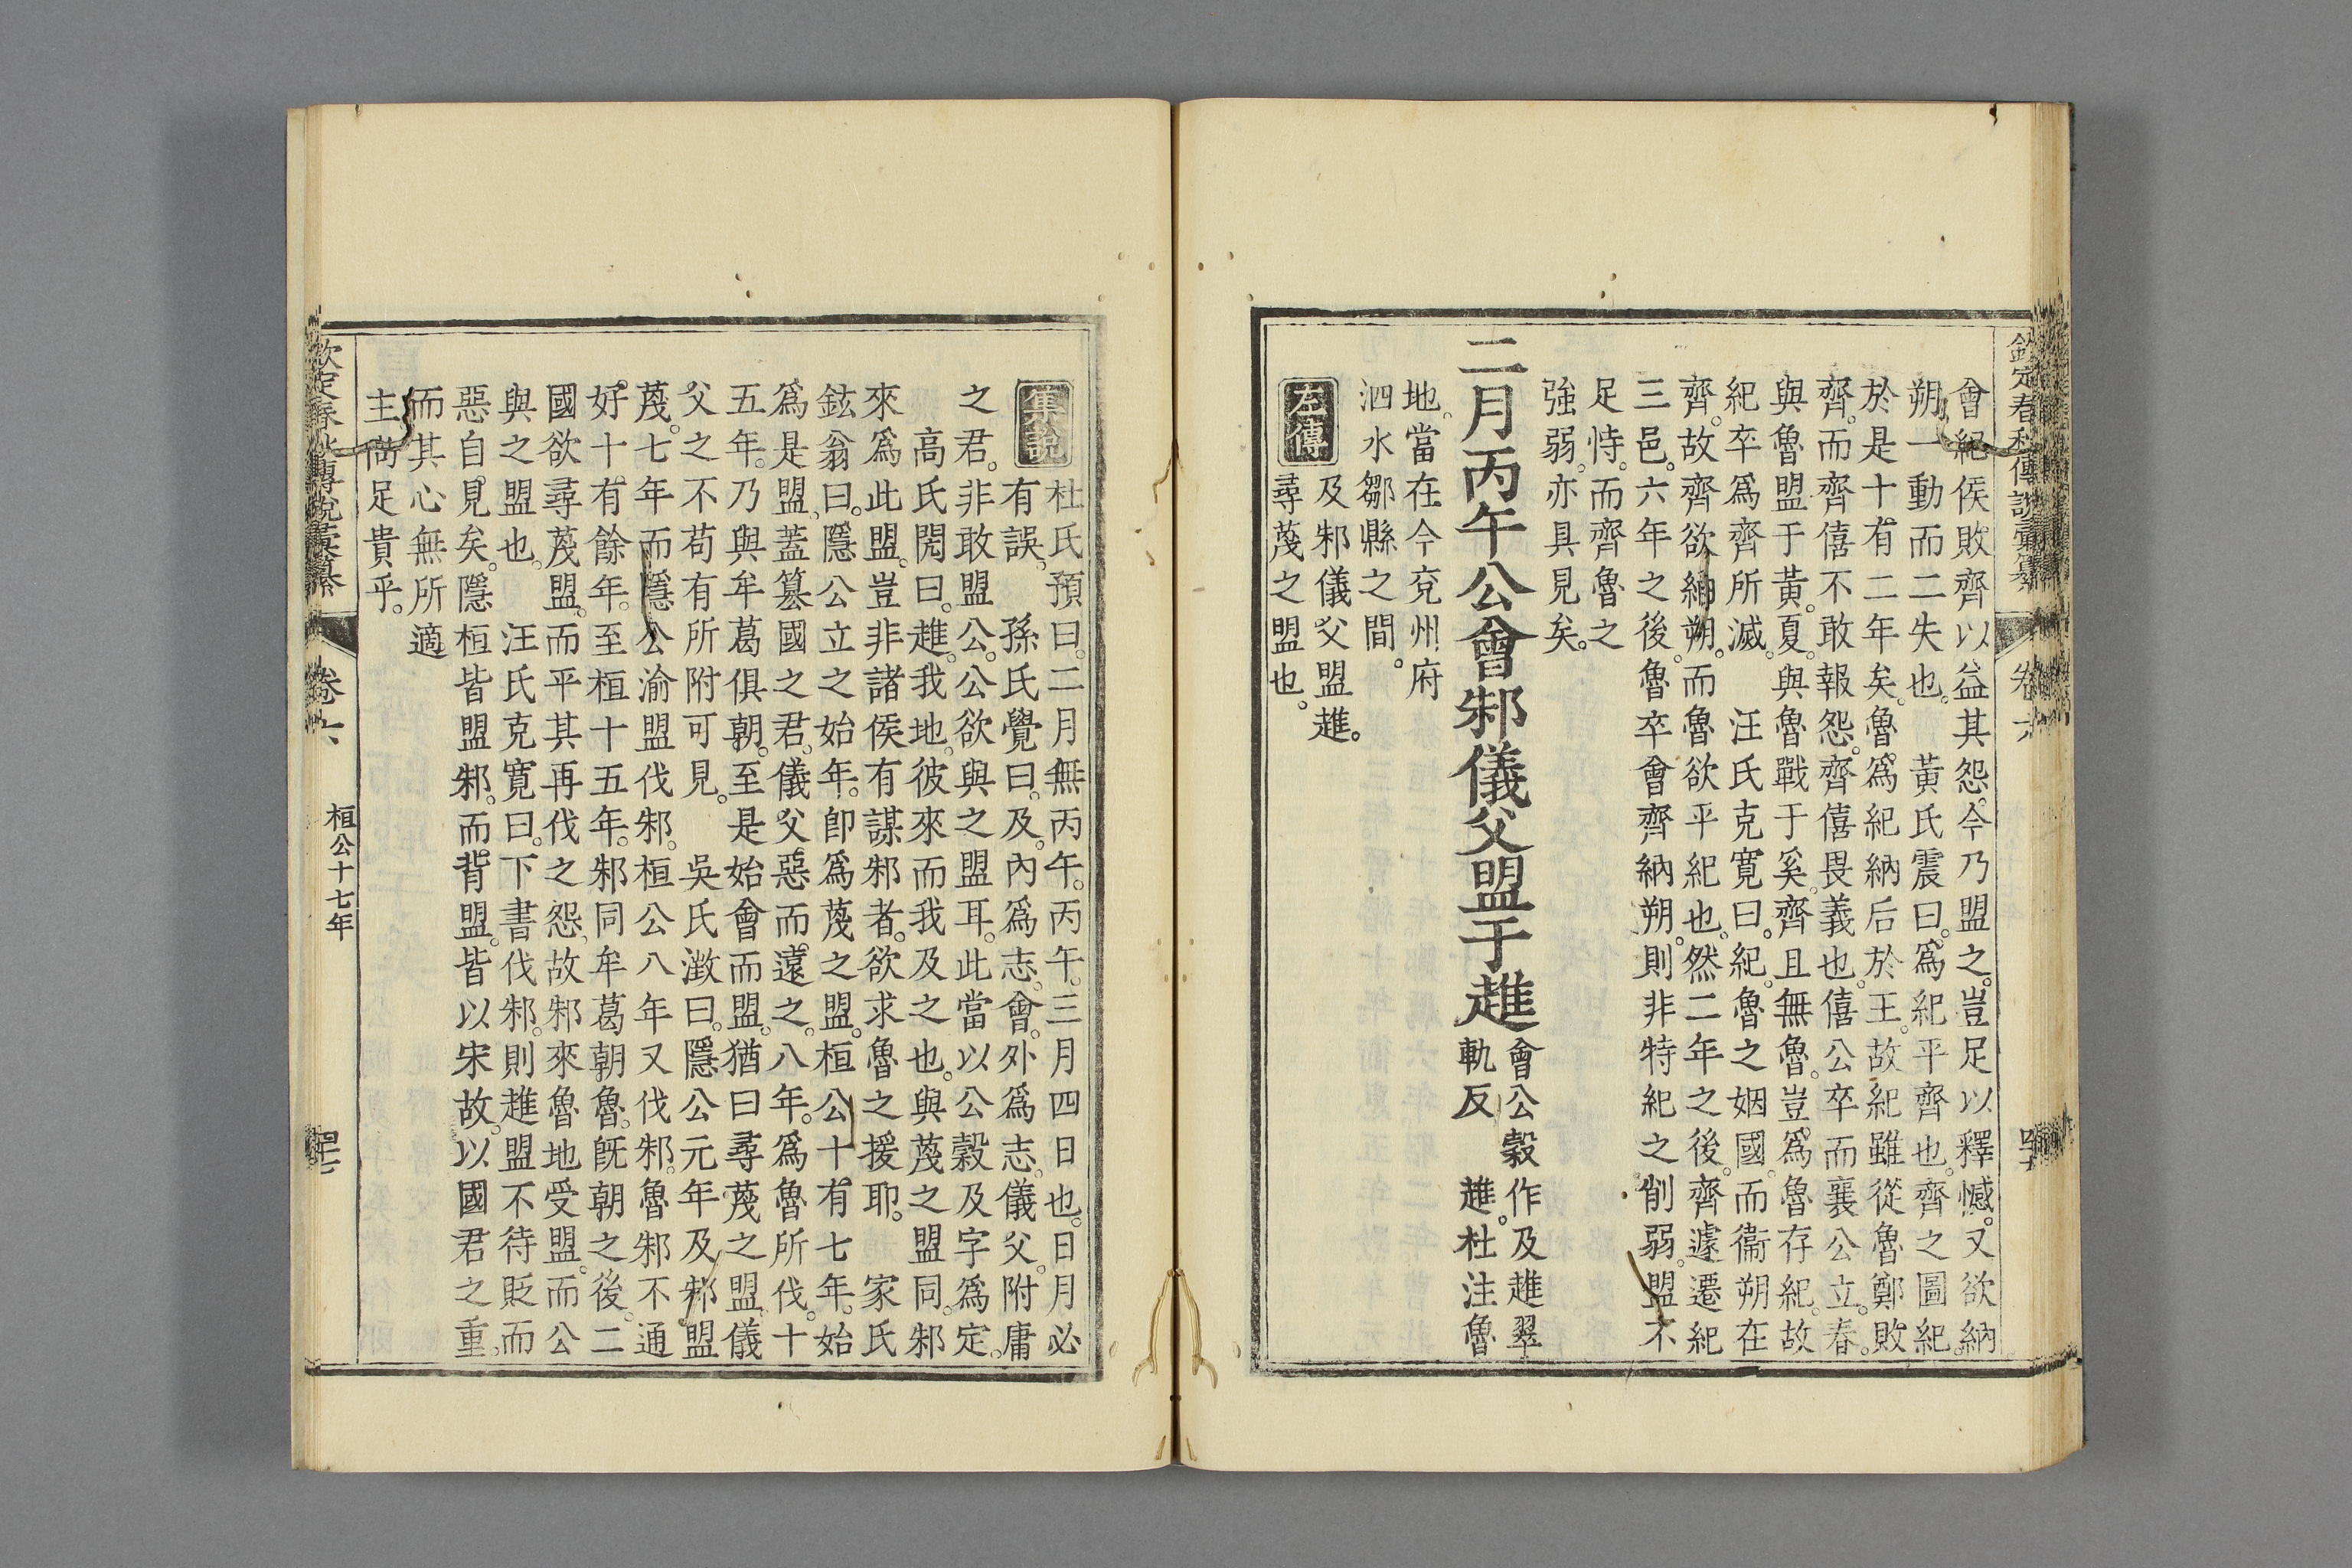 欽定春秋傳說彙纂 卷六
會紀侯敗齊以益其怨。今乃盟之。豈足以釋憾。又欲納
朔。一動而二失也。 黃氏震曰。爲紀平齊也。齊之圖紀。
於是十有二年矣。魯爲紀納后於王。故紀雖從魯鄭敗
齊。而齊僖不敢報怨。齊僖畏義也。僖公卒而襄公立。春。
與魯盟于黃。夏。與魯戰于奚。齊且無魯。豈爲魯存紀。故
紀卒爲齊所滅。 汪氏克寬曰。紀。魯之姻國。而衞朔在
齊。故齊欲納朔。而魯欲平紀也。然二年之後。齊遽遷紀
三邑。六年之後。魯卒會齊納朔。則非特紀之削弱。盟不
足恃。而齊魯之
強弱。亦具見矣。
二月丙午公會邾儀父盟于趡
會公穀作及趡翠
軌反 趡。杜注魯
地。當在今兗州府
泗水鄒縣之間。
左傳 及邾儀父盟趡。
尋蔑之盟也。
集說 杜氏預曰。二月無丙午。丙午。三月四日也。日月必
有誤。 孫氏覺曰。及。內爲志。會。外爲志。儀父。附庸
之君。非敢盟公。公欲與之盟耳。此當以公穀及字爲定。
高氏閌曰。趡。我地。彼來而我及之也。與蔑之盟同。邾
來爲此盟。豈非諸侯有謀邾者。欲求魯之援耶。 家氏
鉉翁曰。隱公立之始年。卽爲蔑之盟。桓公十有七年。始
爲是盟。蓋篡國之君。儀父惡而遠之。八年。爲魯所伐。十
五年。乃與牟葛俱朝。至是始會而盟。猶曰尋蔑之盟。儀
父之不苟有所附可見。 吳氏澂曰。隱公元年及邾盟
蔑。七年而隱公渝盟伐邾。桓公八年又伐邾。魯邾不通
好。十有餘年。至桓十五年。邾同牟葛朝魯。旣朝之後。二
國欲尋蔑盟。而平其再伐之怨。故邾來魯地受盟。而公
與之盟也。 汪氏克寬曰。下書伐邾。則趡盟不待貶而
惡自見矣。隱桓皆盟邾。而背盟。皆以宋故。以國君之重。
而其心無所適
主。尚足貴乎。
欽定春秋傳說彙纂 卷六 桓公十七年